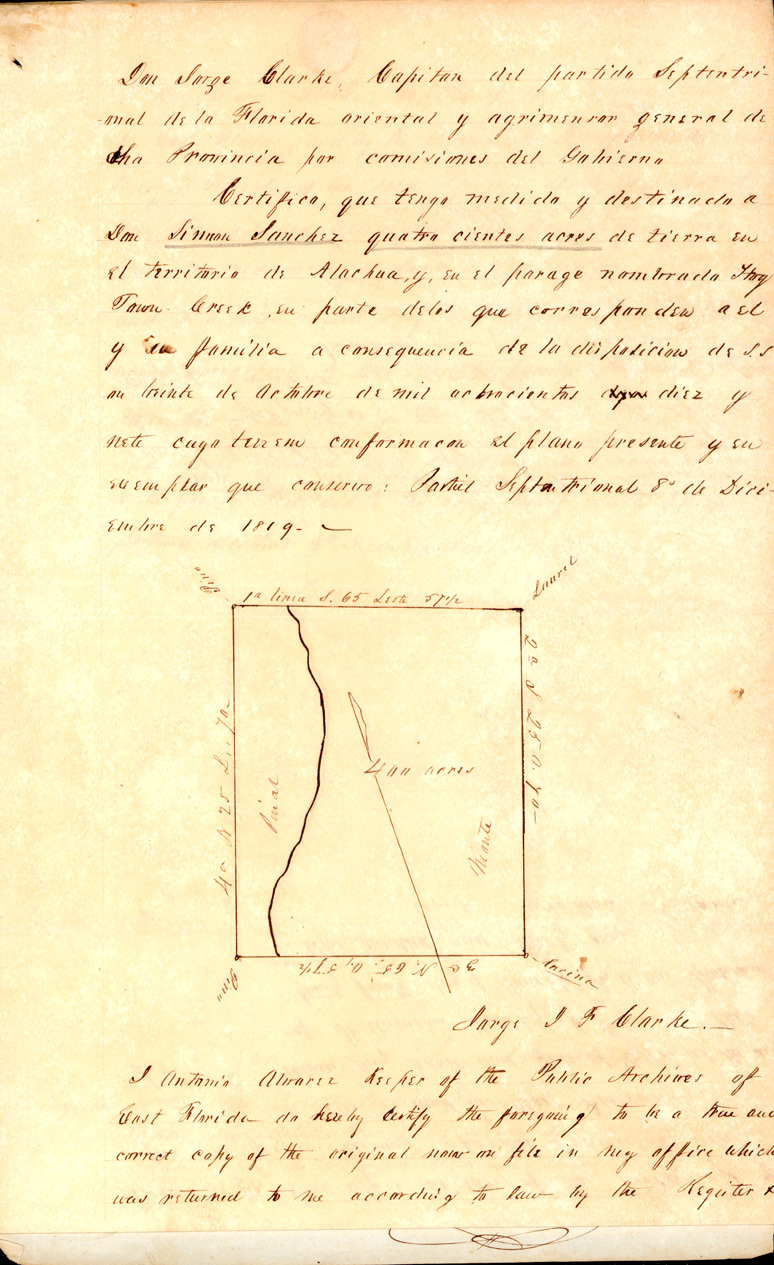 Don Jorge Clarke, Capitan del partido Septentri-
-onal de la Florida oriental y agrimensor general de
dha Provincia por comisiones del Gobierno
Certifico, que tengo medido y destinado a
Don Simeon Sanchez quatro cientos acres de tierra en
el territorio de Alachua, y, en el parage nombrado Hog
Town Creek, en parte delos que corresponden a el
y su familia a consequencia de la disposicion de S.S
en veinte de Octubre de mil ochocientos diez y
siete cuyo terreno conformacon el plano presente y su
exemplar que conservo: Partid Septentrional 8º de Dici-
embre de 1819 -
Pino
1ª linea S. 65 Leste 57½
Laurel
2ª S 25 O. 70-
4ª N 25 Le 70-
Pinal
400 acres
Monte
3ª N. 65 O, 57½
Pino
Encina
Jorge J F Clarke. -
I Antonio Alvarez Keeper of the Public Archives of
East Florida do hereby certify the foregoing to be a true and
correct copy of the original now on file in my office which
was returned to me according to law by the Register &